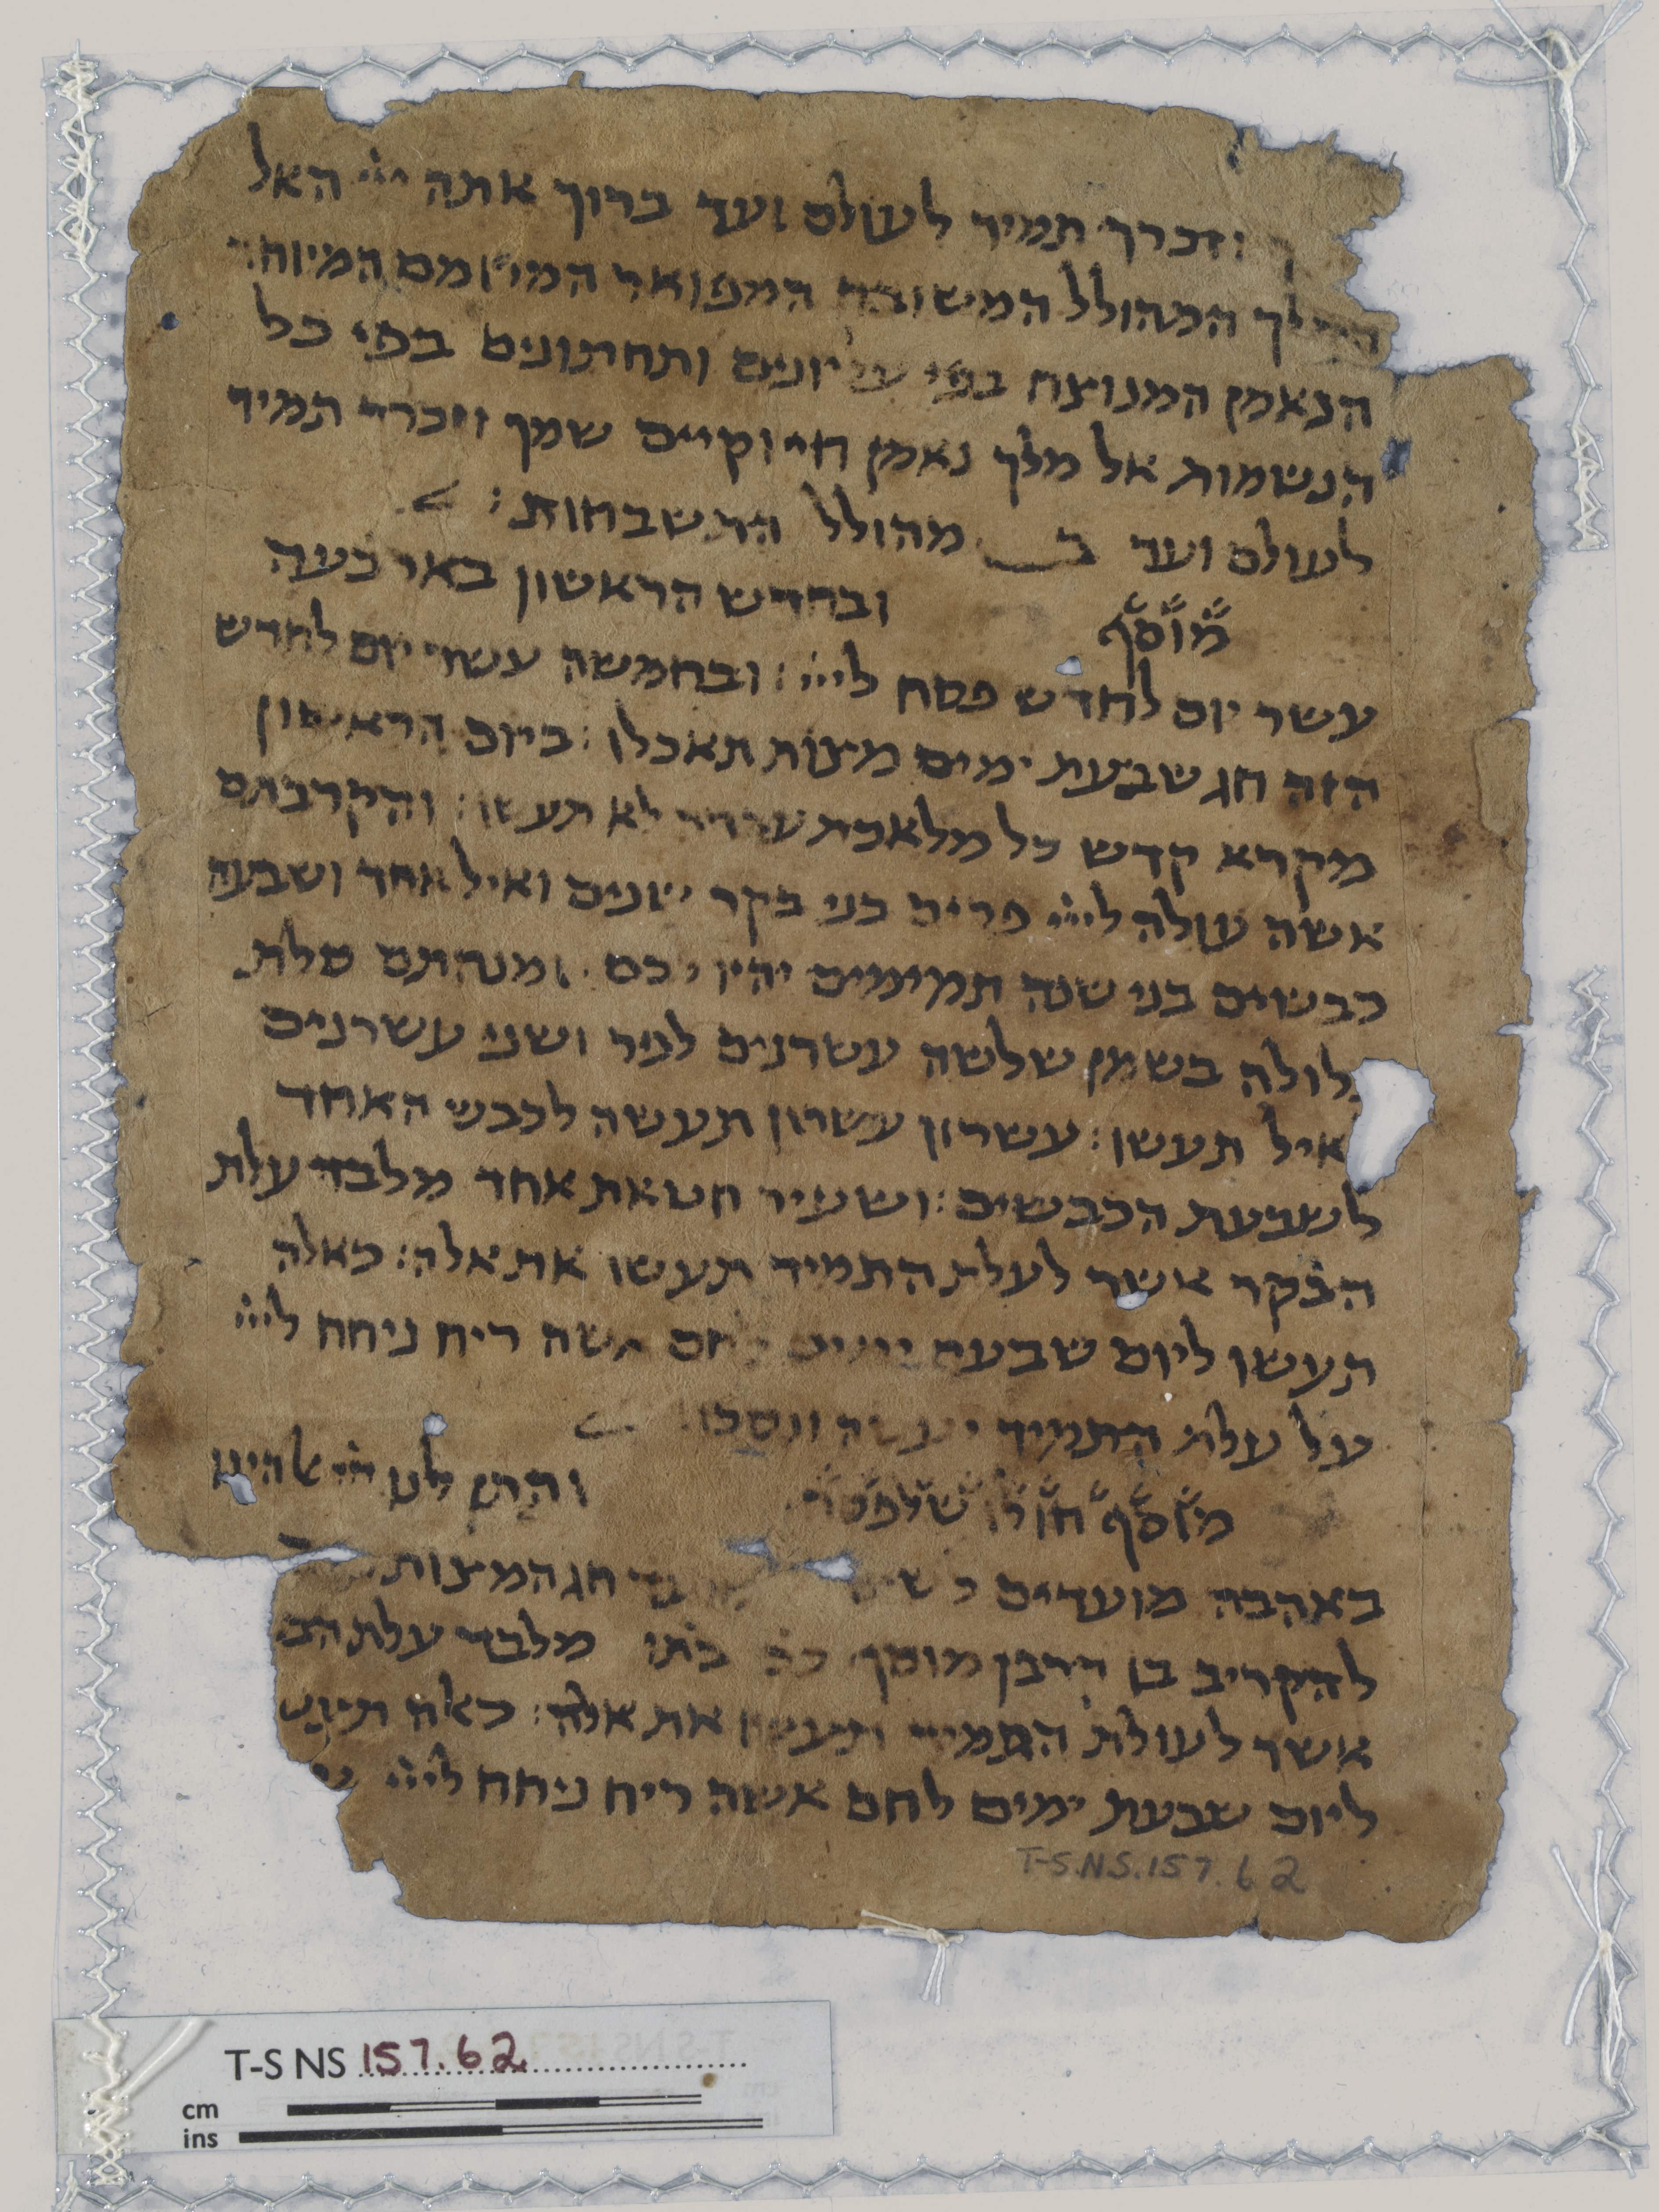 וזכרך תמיד לעולם ועד ברוך אתה ייי האל
המלך המהולל המשובח המפואר המרומם המיוחד
הנאמן המנוצח בפי עליונים ותחתונים בפי כל
הנשמות אל מלך נאמן חי וקיים שמך וזכרך תמיד
לעולם ועד ב מהולל התשבחות :
מוסף ובחדש הראשון בארבעה
עשר יום לחדש פסח לייי : ובחמשה עשר יום לחדש
הזה חג שבעת ימים מצות תאכלו : ביום הראשון
מקרא קדש כל מלאכת עבודה לא תעשו : והקרבתם
אשה עולה לייי פרים בני בקר שנים ואיל אחד ושבעה
כבשים בני שנה תמימים יהיו לכם : ומנחתם סלת
בלולה בשמן שלשה עשרנים לפר ושני עשרנים
איל תעשו : עשרון עשרון תעשה לכבש האחד
לשבעת הכבשים : ושעיר חטאת אחד מלבד עלת
הבקר אשר לעלת התמיד תעשו את אלה : כאלה
תעשו ליום שבעת ימים לחם אשה ריח ניחח לייי
על עלת התמיד יעשה ונסכו :
מוסף חולו שלפסח ותתן לנו ייי אלהינו
באהבה מועדים חג המצות
להקריב בו קרבן מוסף ככ בתו מלבד עלת הב
אשר לעולת התמיד תעשו את אלה : כאלה תעש
ליום שבעת ימים לחם אשה ריח ניחח לייי
T-S.N.S.157.62
T-S NS 157.62
cm
ins